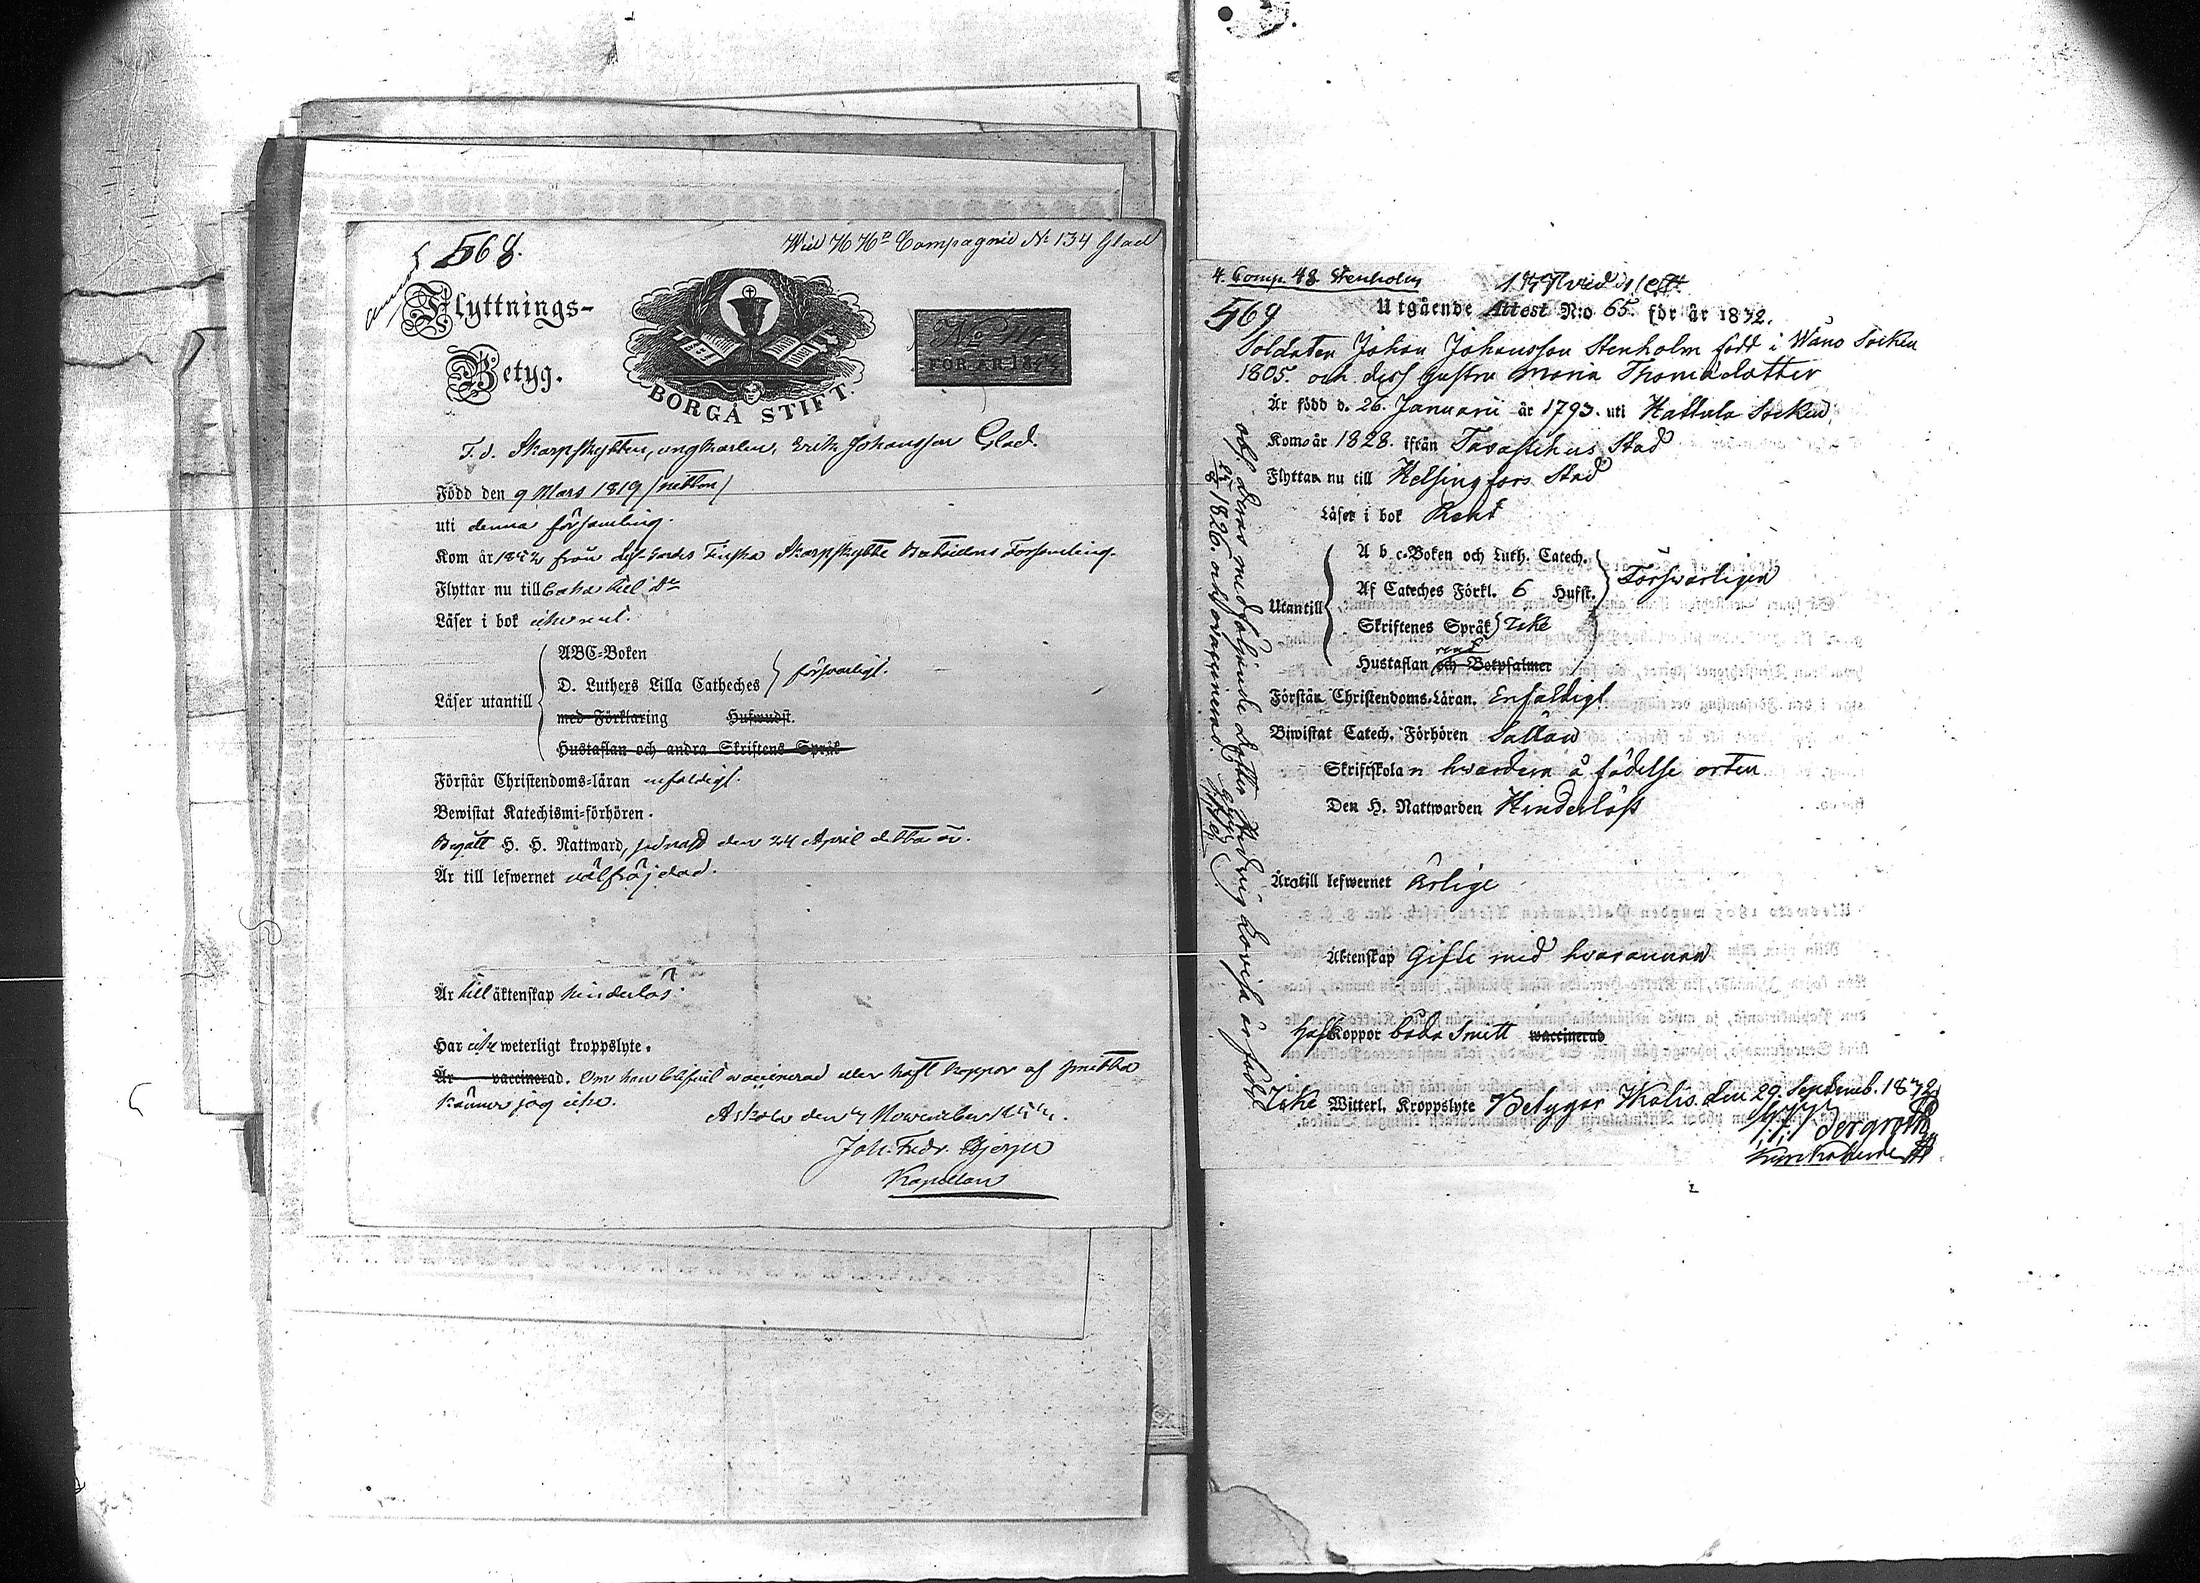 568.
Wid Compagnie No 134 Glad
Flyttnings-
Betyg.
BORGÅ STIFT.
No
FÖR ÅR 18
F. d. Skarpskytten, ungkarlen, Erik Johansson Glad.
Född den 9 Mars 1819 /nitton/
uti denna församling.
Kom år från Finska Skarpskytte Bataillons Församling.
Flyttar nu till
Läser i bok
ABC-Boken
D. Luthers Lilla Catheches försvarligt.
Läser utantill
med Förklaring Hufwudst.
Hustaflan och andra Skriftens Språk
Förstår Christendoms-läran enfaldigt.
Bewistat Katechismi-förhören.
Begått H. H. Nattward, sednast den 24 April detta år.
Är till lefwernet välfräjdad.
Är till äktenskap hinderlös.
Har icke weterligt kroppslyte.
Är vaccinerad. Om han blifvit vaccinerad eller haft koppor af
känner jag icke.
Askola den November
Joh. Fredr.
Kapellan
4. Comp. 48 Stenholm
569
Utgående Attest N:o 65. för år 1832.
Soldaten Johan Johansson Stenholm född i Wåno Socken
1805. och dess hustru Maria Thomasdotter
Är född d. 26. Januarii år 1793. uti Hattula Socken
Kom år 1828. ifrån Tavastehus Stad
Flyttar nu till Helsingfors Stad
Läser i bok Rent
A b c-Boken och Luth. Catech.
Af Cateches Förkl. 6 Hufst. Försvarligen
Utantill
Skriftenes Språk Icke
rent
Hustaflan och Botpsalmer
Förstår Christendoms-Läran. Enfaldigt
Biwistat Catech. Förhören Sällan
Skriftskolan hvardera å födelse orten
Den H. Nattwarden Hinderlöst
Äro till lefwernet Ärlige
Äktenskap Gifte med hvarannan
Haft Koppor båda Smitt vaccinerad
Icke Witterl. Kroppslyte Betygar Wånå den 29 Septemb. 1832
obs. deras medföljande dotter Hedvig Lovisa är född
1826. och vaccinerad.